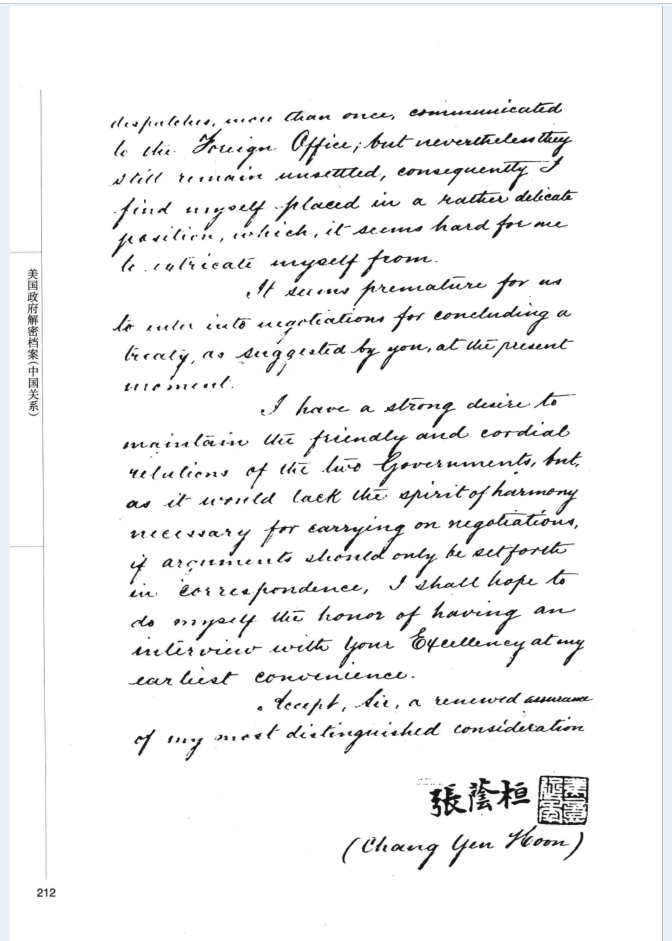 dispatches, more than once, communicated
to the Foreign Office; but nevertheless they
still remain unsettled, consequently I
find myself placed in a rather delicate
position, which, it seems hard for me
to extricate myself from.
It seems premature for us
to enter into negotiations for concluding a
treaty, as suggested by you, at the present
moment.
I have a strong desire to
maintain the friendly and cordial
relations of the two Governments, but,
as it would lack the spirit of harmony
necessary for carrying on negotiations,
if arguments should only be set forth
in correspondence, I shall hope to
do myself the honor of having an
interview with Your Excellency at my
earliest convenience.
Accept, Sir, a renewed assurance
of my most distinguished consideration
張蔭桓
(Chang Yen Hoon)
美国政府解密档案(中国关系)
212